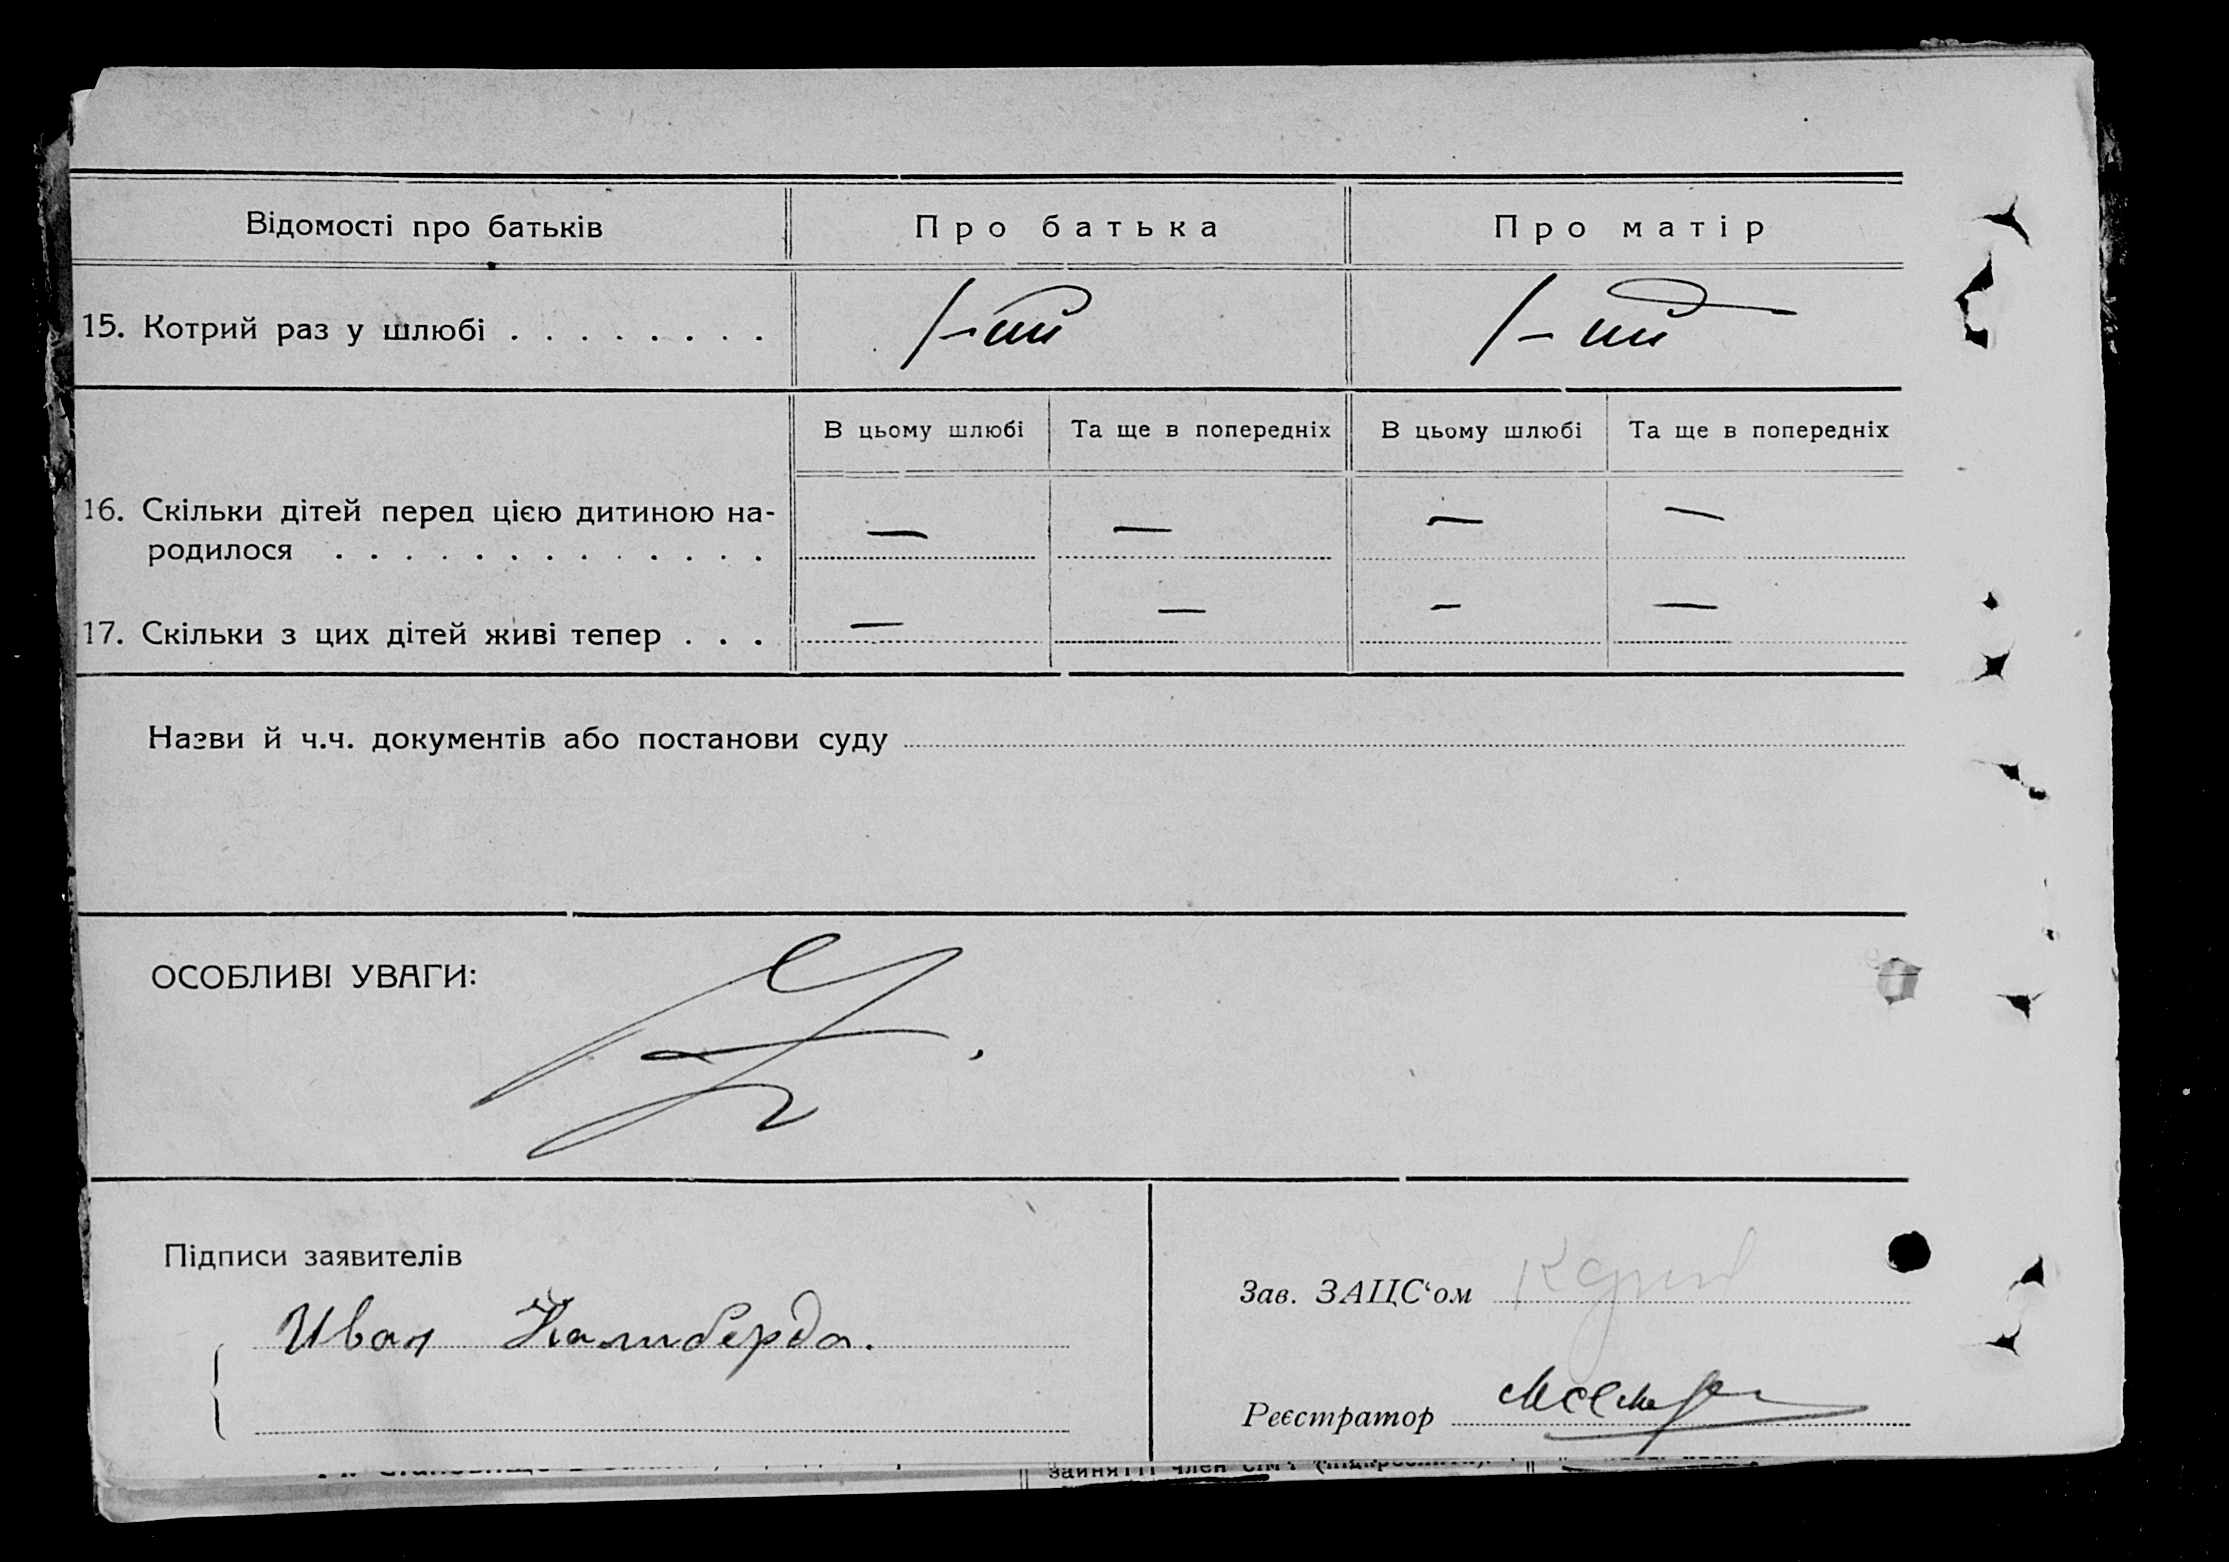 Відомості про батьків
Про батька
Про матір
15. Котрий раз у шлюбі . . . . . . . .
1-ий
1-ий
В цьому шлюбі
Та ще в попередніх
В цьому шлюбі
Та ще в попередніх
16. Скільки дітей перед цією дитиною на-
родилося . . . . . . . . . . . . . .
— — — —
17. Скільки з цих дітей живі тепер . . .
— — — —
Назви й ч.ч. документів або постанови суду
ОСОБЛИВІ УВАГИ:
Підписи заявителів
Иван Калиберда.
Зав. ЗАЦС‘ом
Реєстратор
зайнятті член сім'ї (підкреслити)